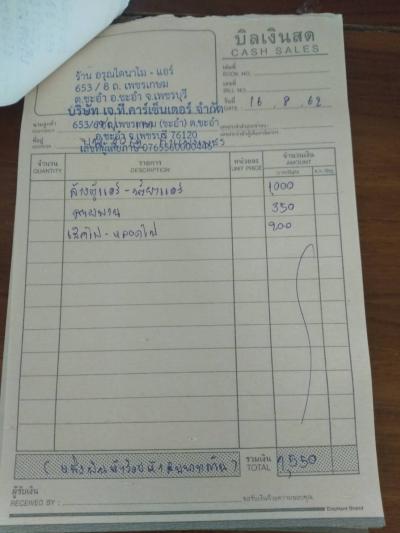 บิลเงินสด
CASH SALES
ร้าน อรุณไดนาโม - แอร์
653 / 8 ถ. เพชรเกษม
ต.ชะอำ อ.ชะอำ จ.เพชรบุรี
เล่มที่
BOOK NO.
เลขที่
BILL NO.
วันที่ 16 8 62
DATE
บริษัท เจ.ที.คาร์เซ็นเตอร์ จำกัด
นามลูกค้า 653/8 ถ.เพชรเกษม (ชะอำ) ต.ชะอำ
ที่อยู่ อ.ชะอำ จ.เพชรบุรี 76120
เลขที่ผู้เสียภาษี
จำนวน รายการ หน่วยละ จำนวนเงิน
QUANTITY DESCRIPTION UNIT PRICE AMOUNT
ล้างตู้แอร์ - น้ำยาแอร์ 1,000
350
เสาไฟ - หลอดไฟ 200
รวมเงิน
TOTAL 1,550
ผู้รับเงิน
RECEIVED BY : ขอรับเงินด้วยความขอบคุณ
Elephant Brand